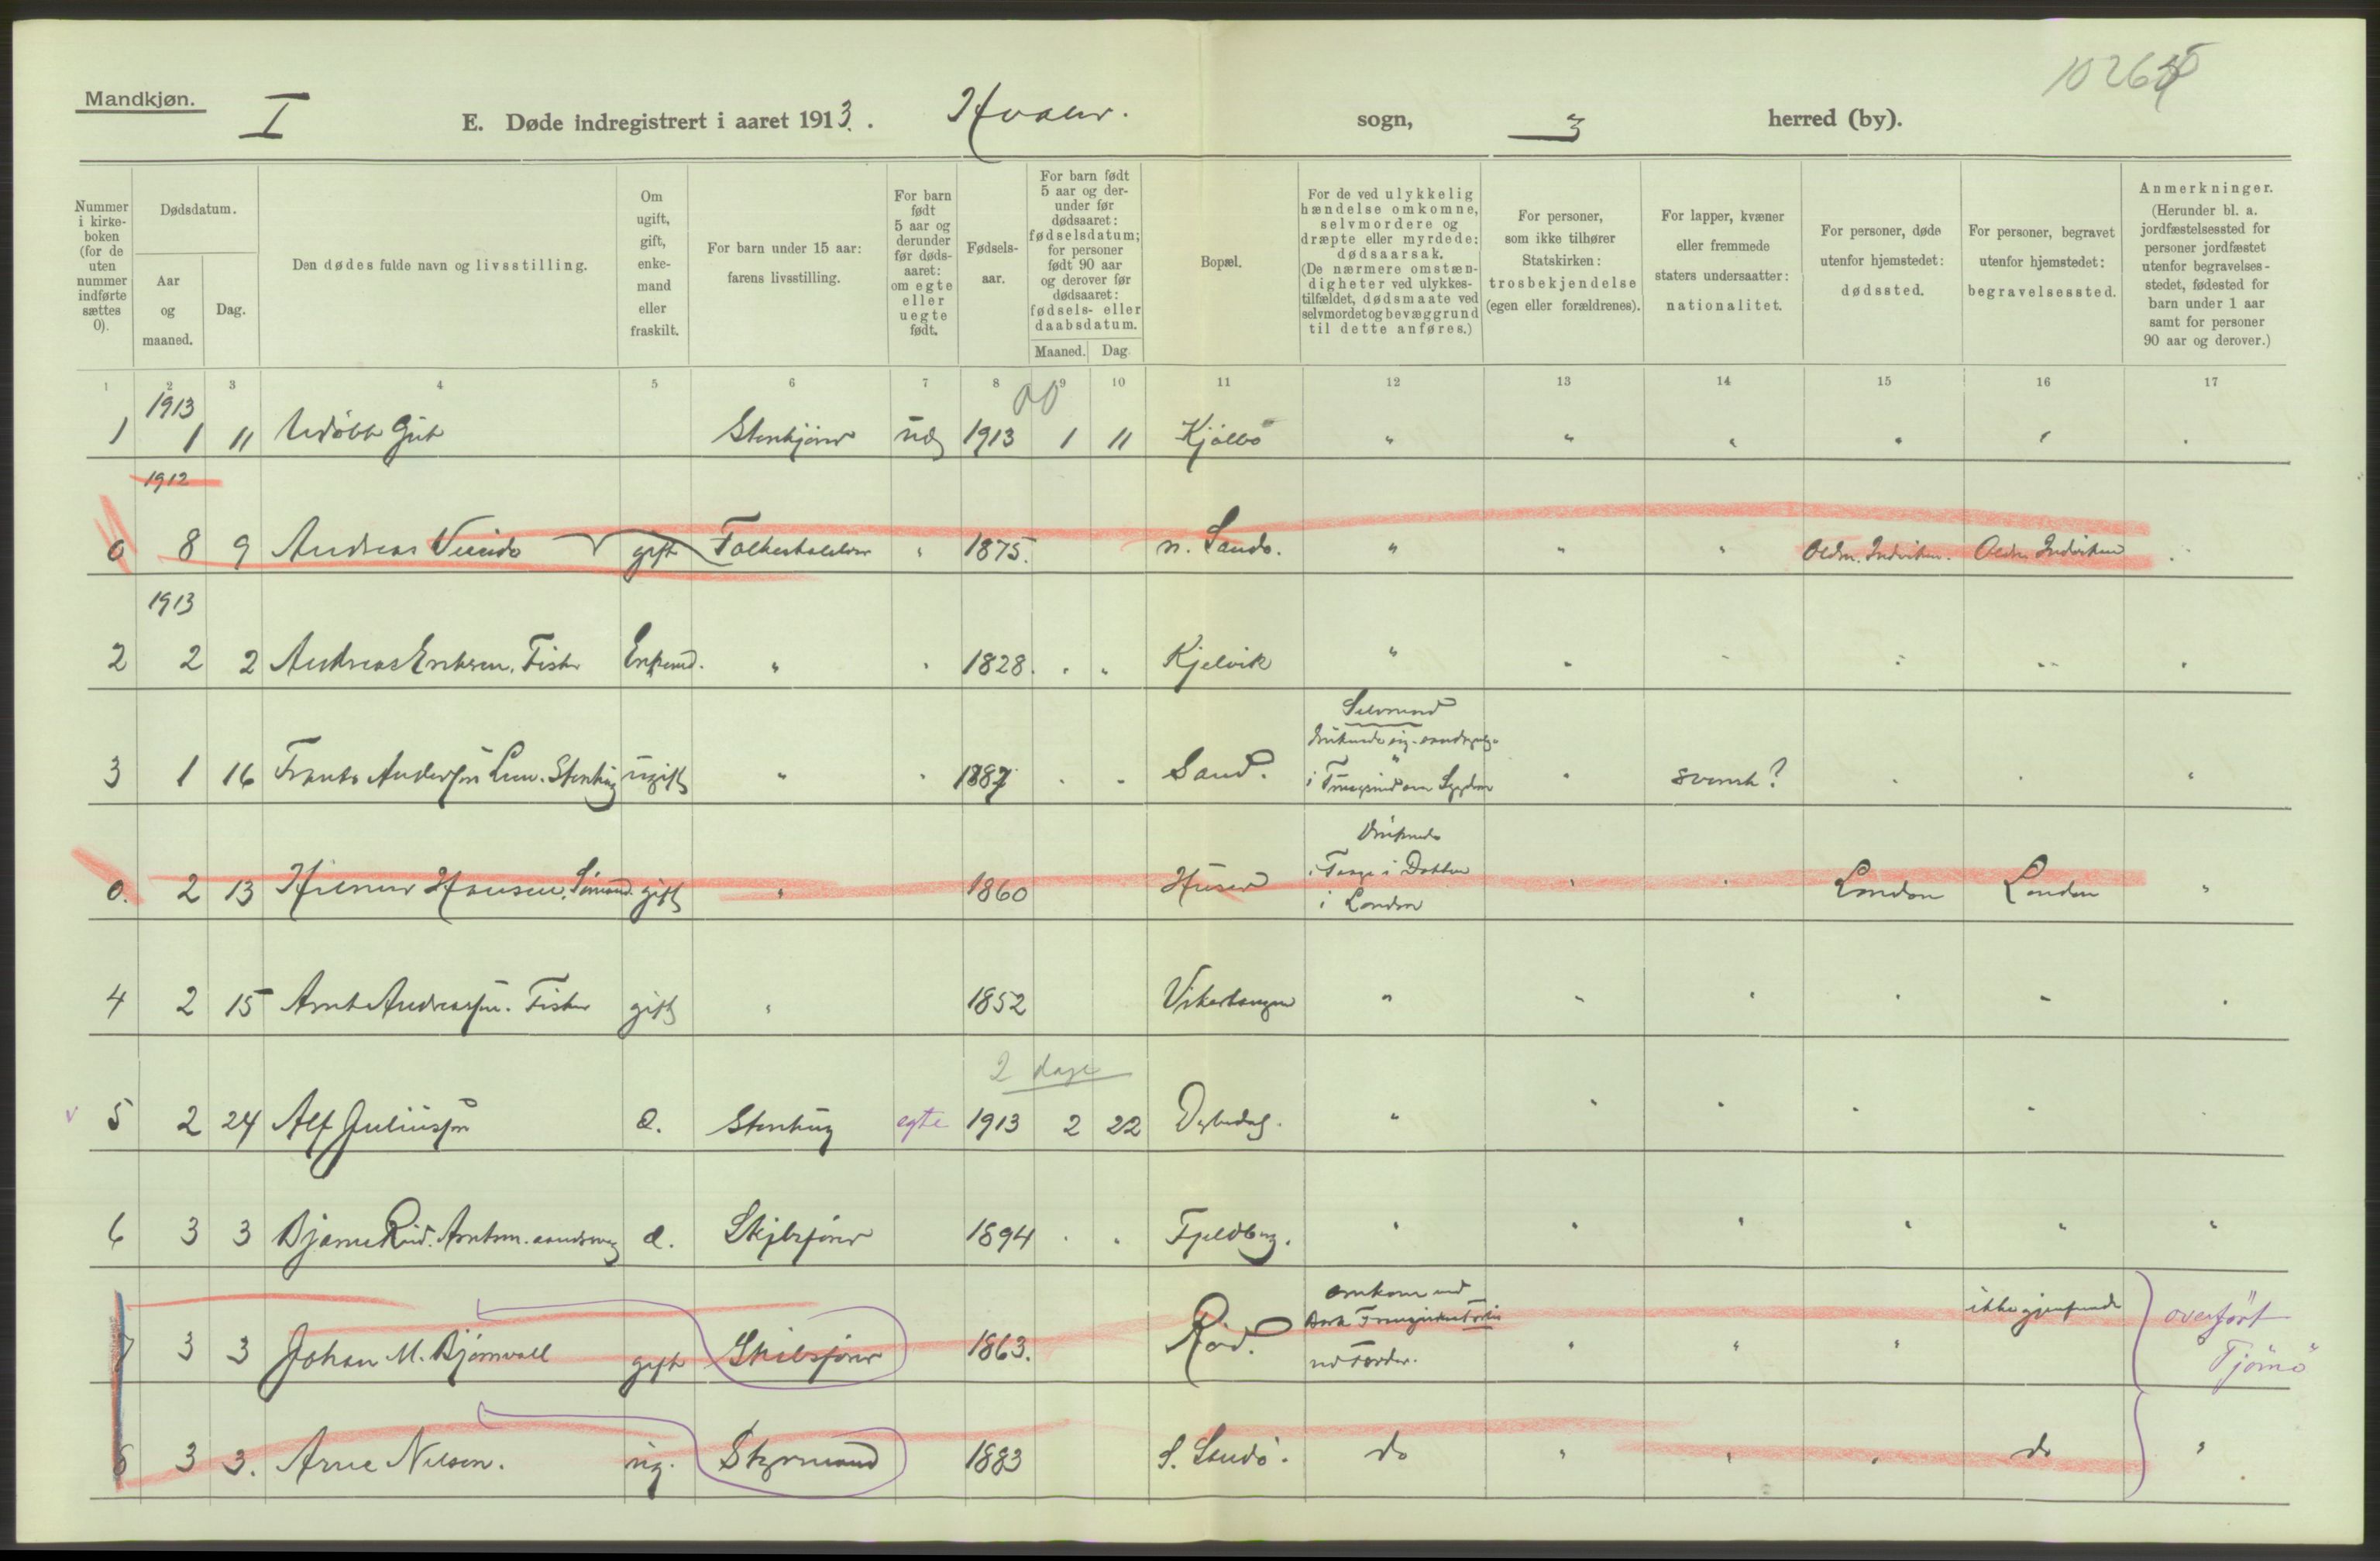 Mandkjøn.
I
E. Døde indregistrert i aaret 1913. Hvaler. sogn, 3 herred (by).
Nummer i kirke-boken (for de uten nummer indførte sættes 0).
Dødsdatum.
Aar og maaned.
Dag.
Den dødes fulde navn og livsstilling.
Om ugift, gift, enke-mand eller fraskilt.
For barn under 15 aar: farens livsstilling.
For barn født 5 aar og derunder før døds-aaret: om egte eller uegte født.
Fødsels-aar.
For barn født 5 aar og der-under før dødsaaret: fødselsdatum; for personer født 90 aar og derover før dødsaaret: fødsels- eller daabsdatum.
Maaned. Dag.
Bopæl.
For de ved ulykkelig hændelse omkomne, selvmordere og dræpte eller myrdede: dødsaarsak. (De nærmere omstæn-digheter ved ulykkes-tilfældet, dødsmaate ved selvmordet og bevæggrund til dette anføres.)
For personer, som ikke tilhører Statskirken: trosbekjendelse (egen eller forældrenes).
For lapper, kvæner eller fremmede staters undersaatter: nationalitet.
For personer, døde utenfor hjemstedet: dødssted.
For personer, begravet utenfor hjemstedet: begravelsessted.
Anmerkninger. (Herunder bl. a. jordfæstelsessted for personer jordfæstet utenfor begravelses-stedet, fødested for barn under 1 aar samt for personer 90 aar og derover.)
1 2 3 4 5 6 7 8 9 10 11 12 13 14 15 16 17
1913
1 1 11 Udøbt Gut 1913 1 11 Kjølbo " " " " " "
1912
0 8 9 Andreas gift 1875. n. Sandø. " " "
1913
2 2 2 Andreas Eriksen. Fisker Enkemd. " " 1828. " " Kjelvik " " " " " "
Selvmord
3 1 16 Frants Andersson ugift " " 1887 " " Sand. " svensk? " " "
0. 2 13 Hilmer Hansen. Sømand. gift " 1860 Huser i London " " London London "
4 2 15 Arnt Andreassen. Fisker gift " 1852 Vikertangen " " " " " "
2 dage
5 2 24 Alf Juliussøn d. Stenhug egte 1913 2 22 Dybedal. " " " " "
6 3 3 Bjarne Rud. Arntsen. d. Skibsfører 1894 " " Fjeldberg. " " " " " "
omkom med
7 3 3 Johan M. Bjørnvall gift Skibsfører 1863. Rød. Bark ved Færder. " " " ikke gjenfundet overført Tjømø
8 3 3. Arne Nilsen. ug. Styrmand 1883 S. Sandø. do " " " do "